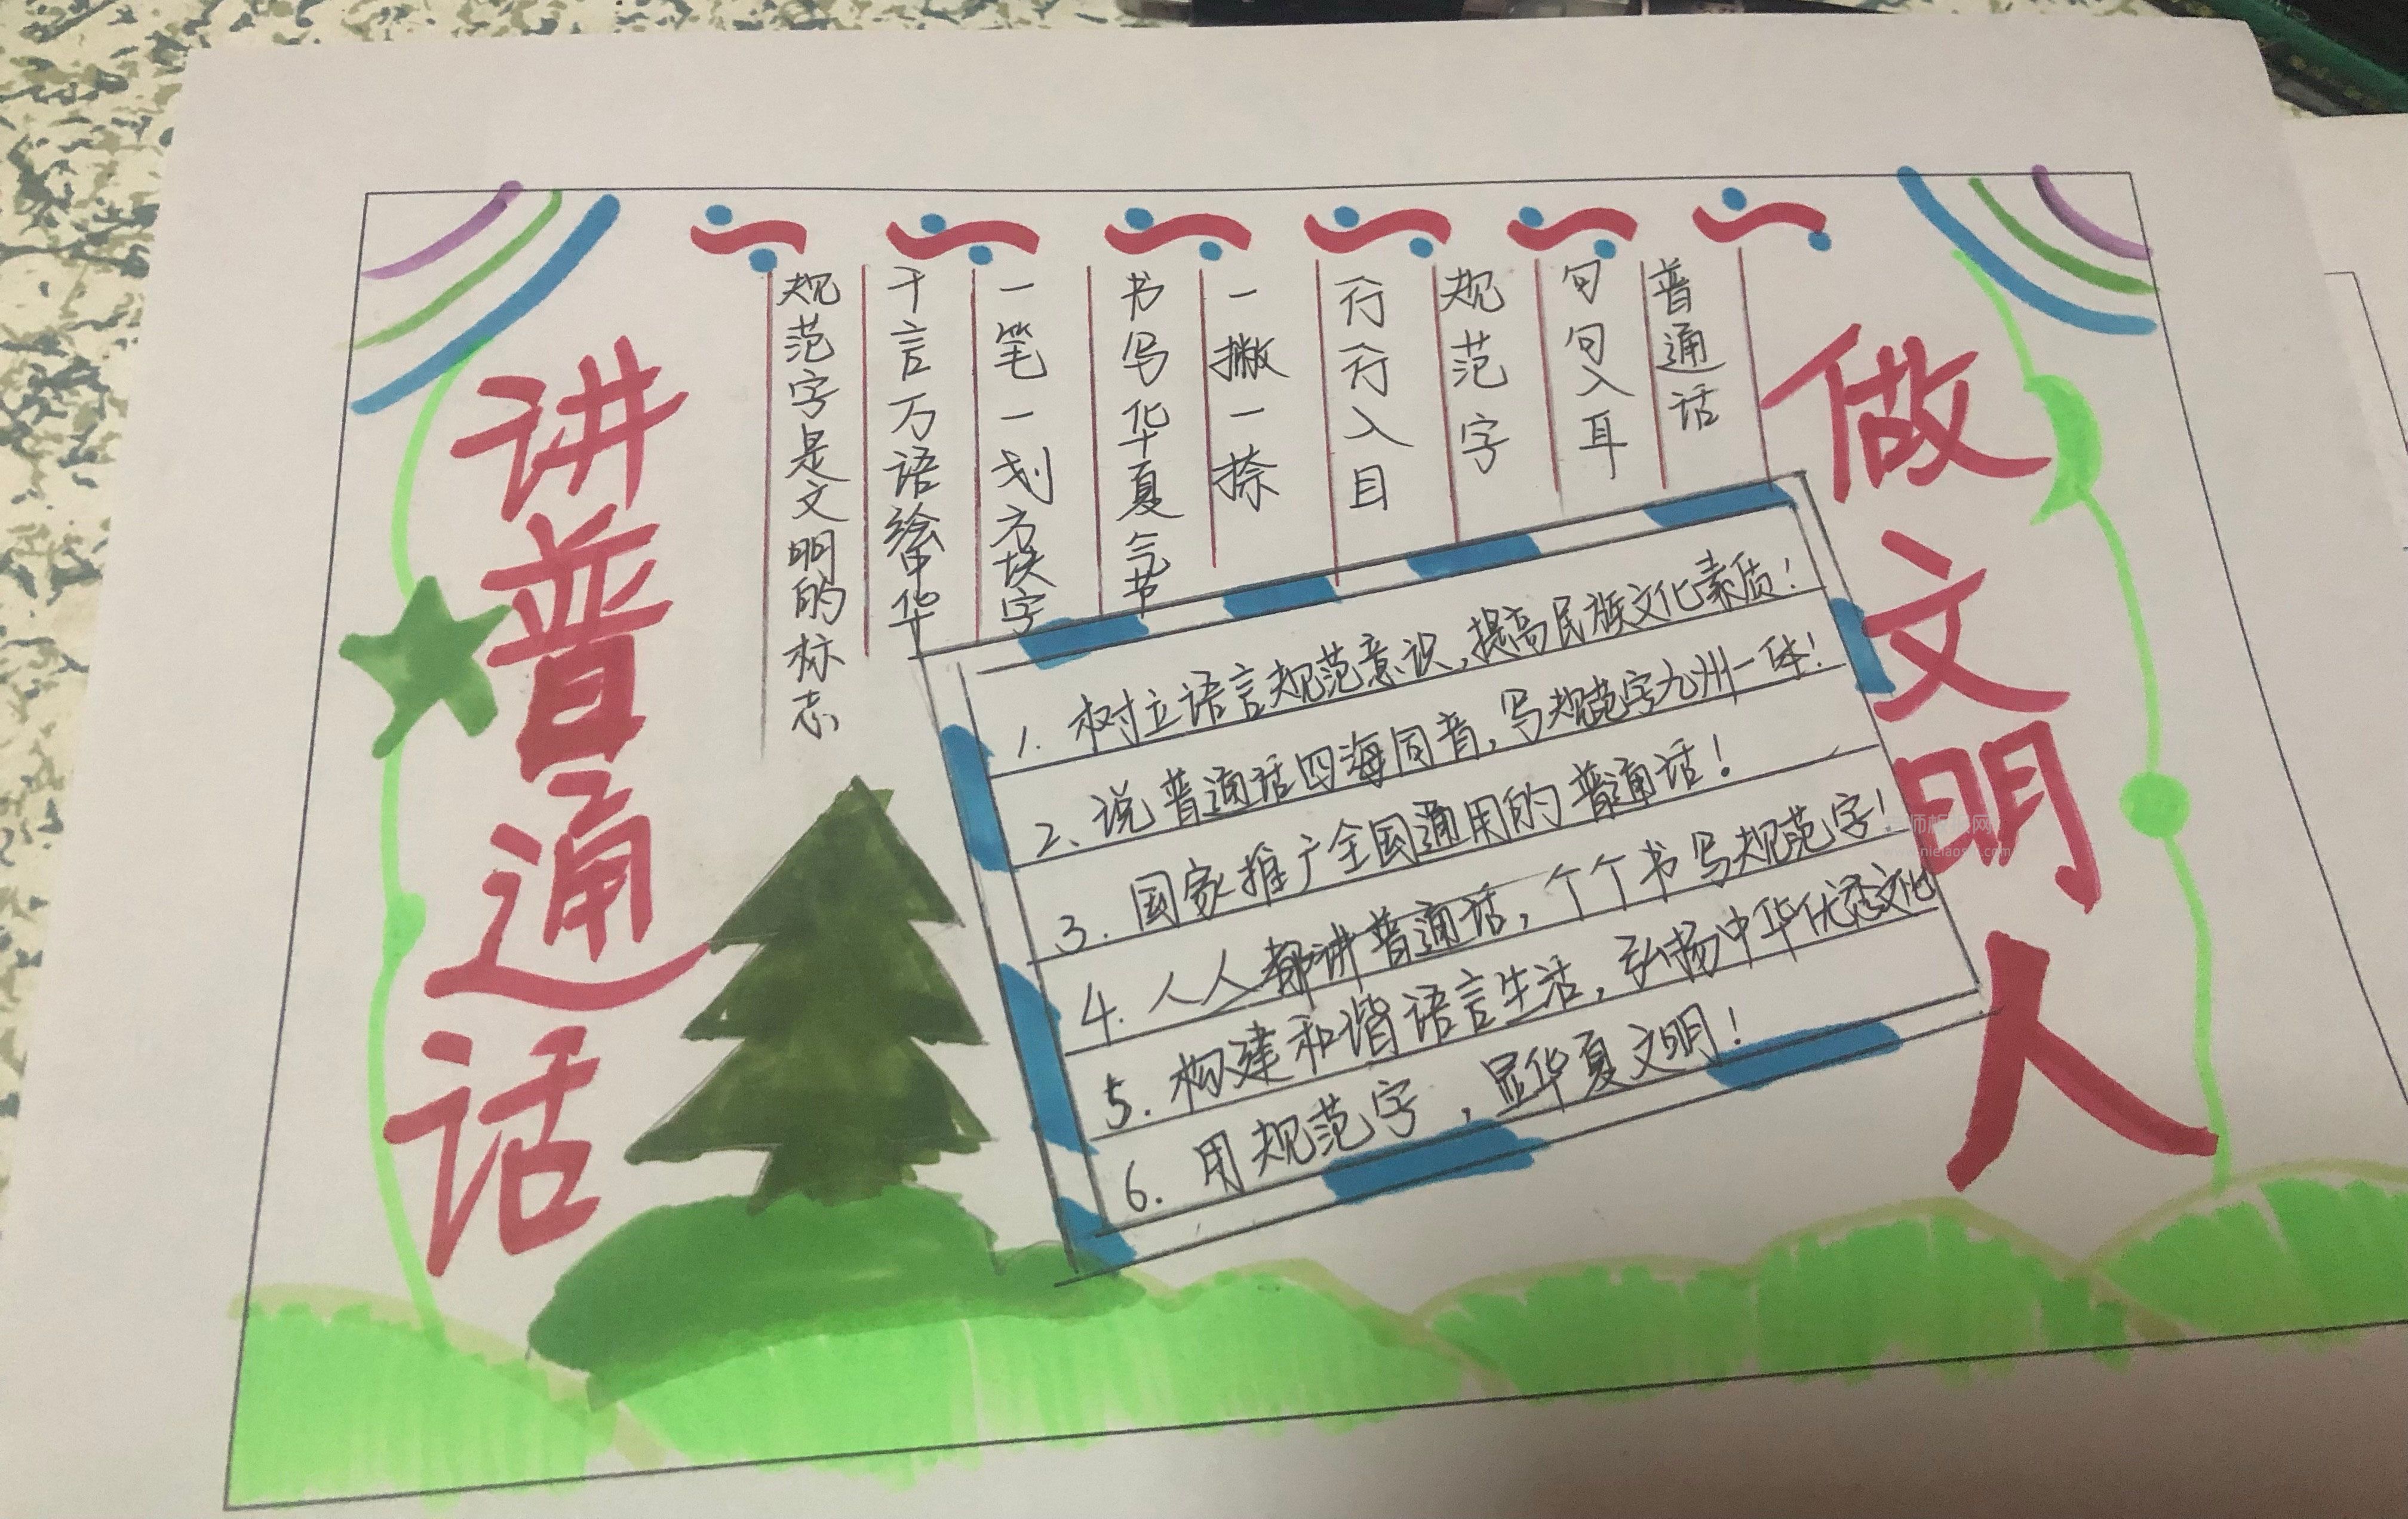 讲普通话
做文明人
普通话
句句入耳
规范字
行行入目
一撇一捺
书写华夏气节
一笔一划方块字
千言万语绘中华
规范字是文明的标志
1. 树立语言规范意识,提高民族文化素质!
2、说普通话四海同音,写规范字九州一体!
3. 国家推广全国通用的普通话!
4. 人人都讲普通话,个个书写规范字!
5. 构建和谐语言生活,弘扬中华优秀文化
6. 用规范字,显华夏文明!